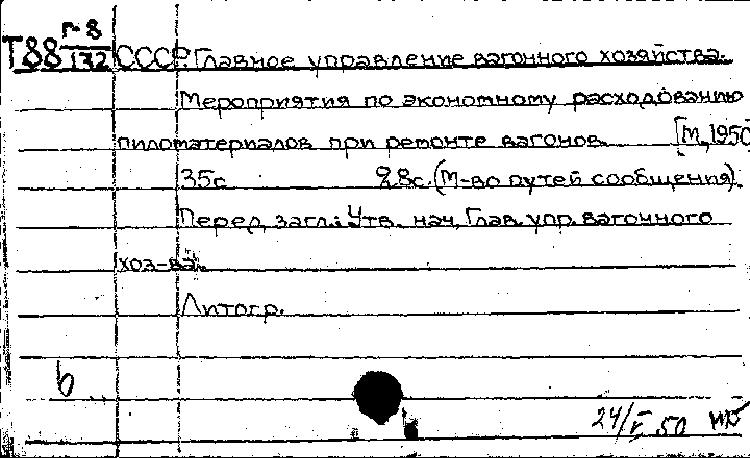 Т88 г-8/132 СССР. Главное управление вагонного хозяйства.
Мероприятия по экономному расходованию
пиломатериалов при ремонте вагонов. [М., 1950
35с 28с. (М-во путей сообщения).
Перед загл.: Утв. нач. Глав. упр. вагонного
хоз-ва.
Литогр.
b
24/V 50